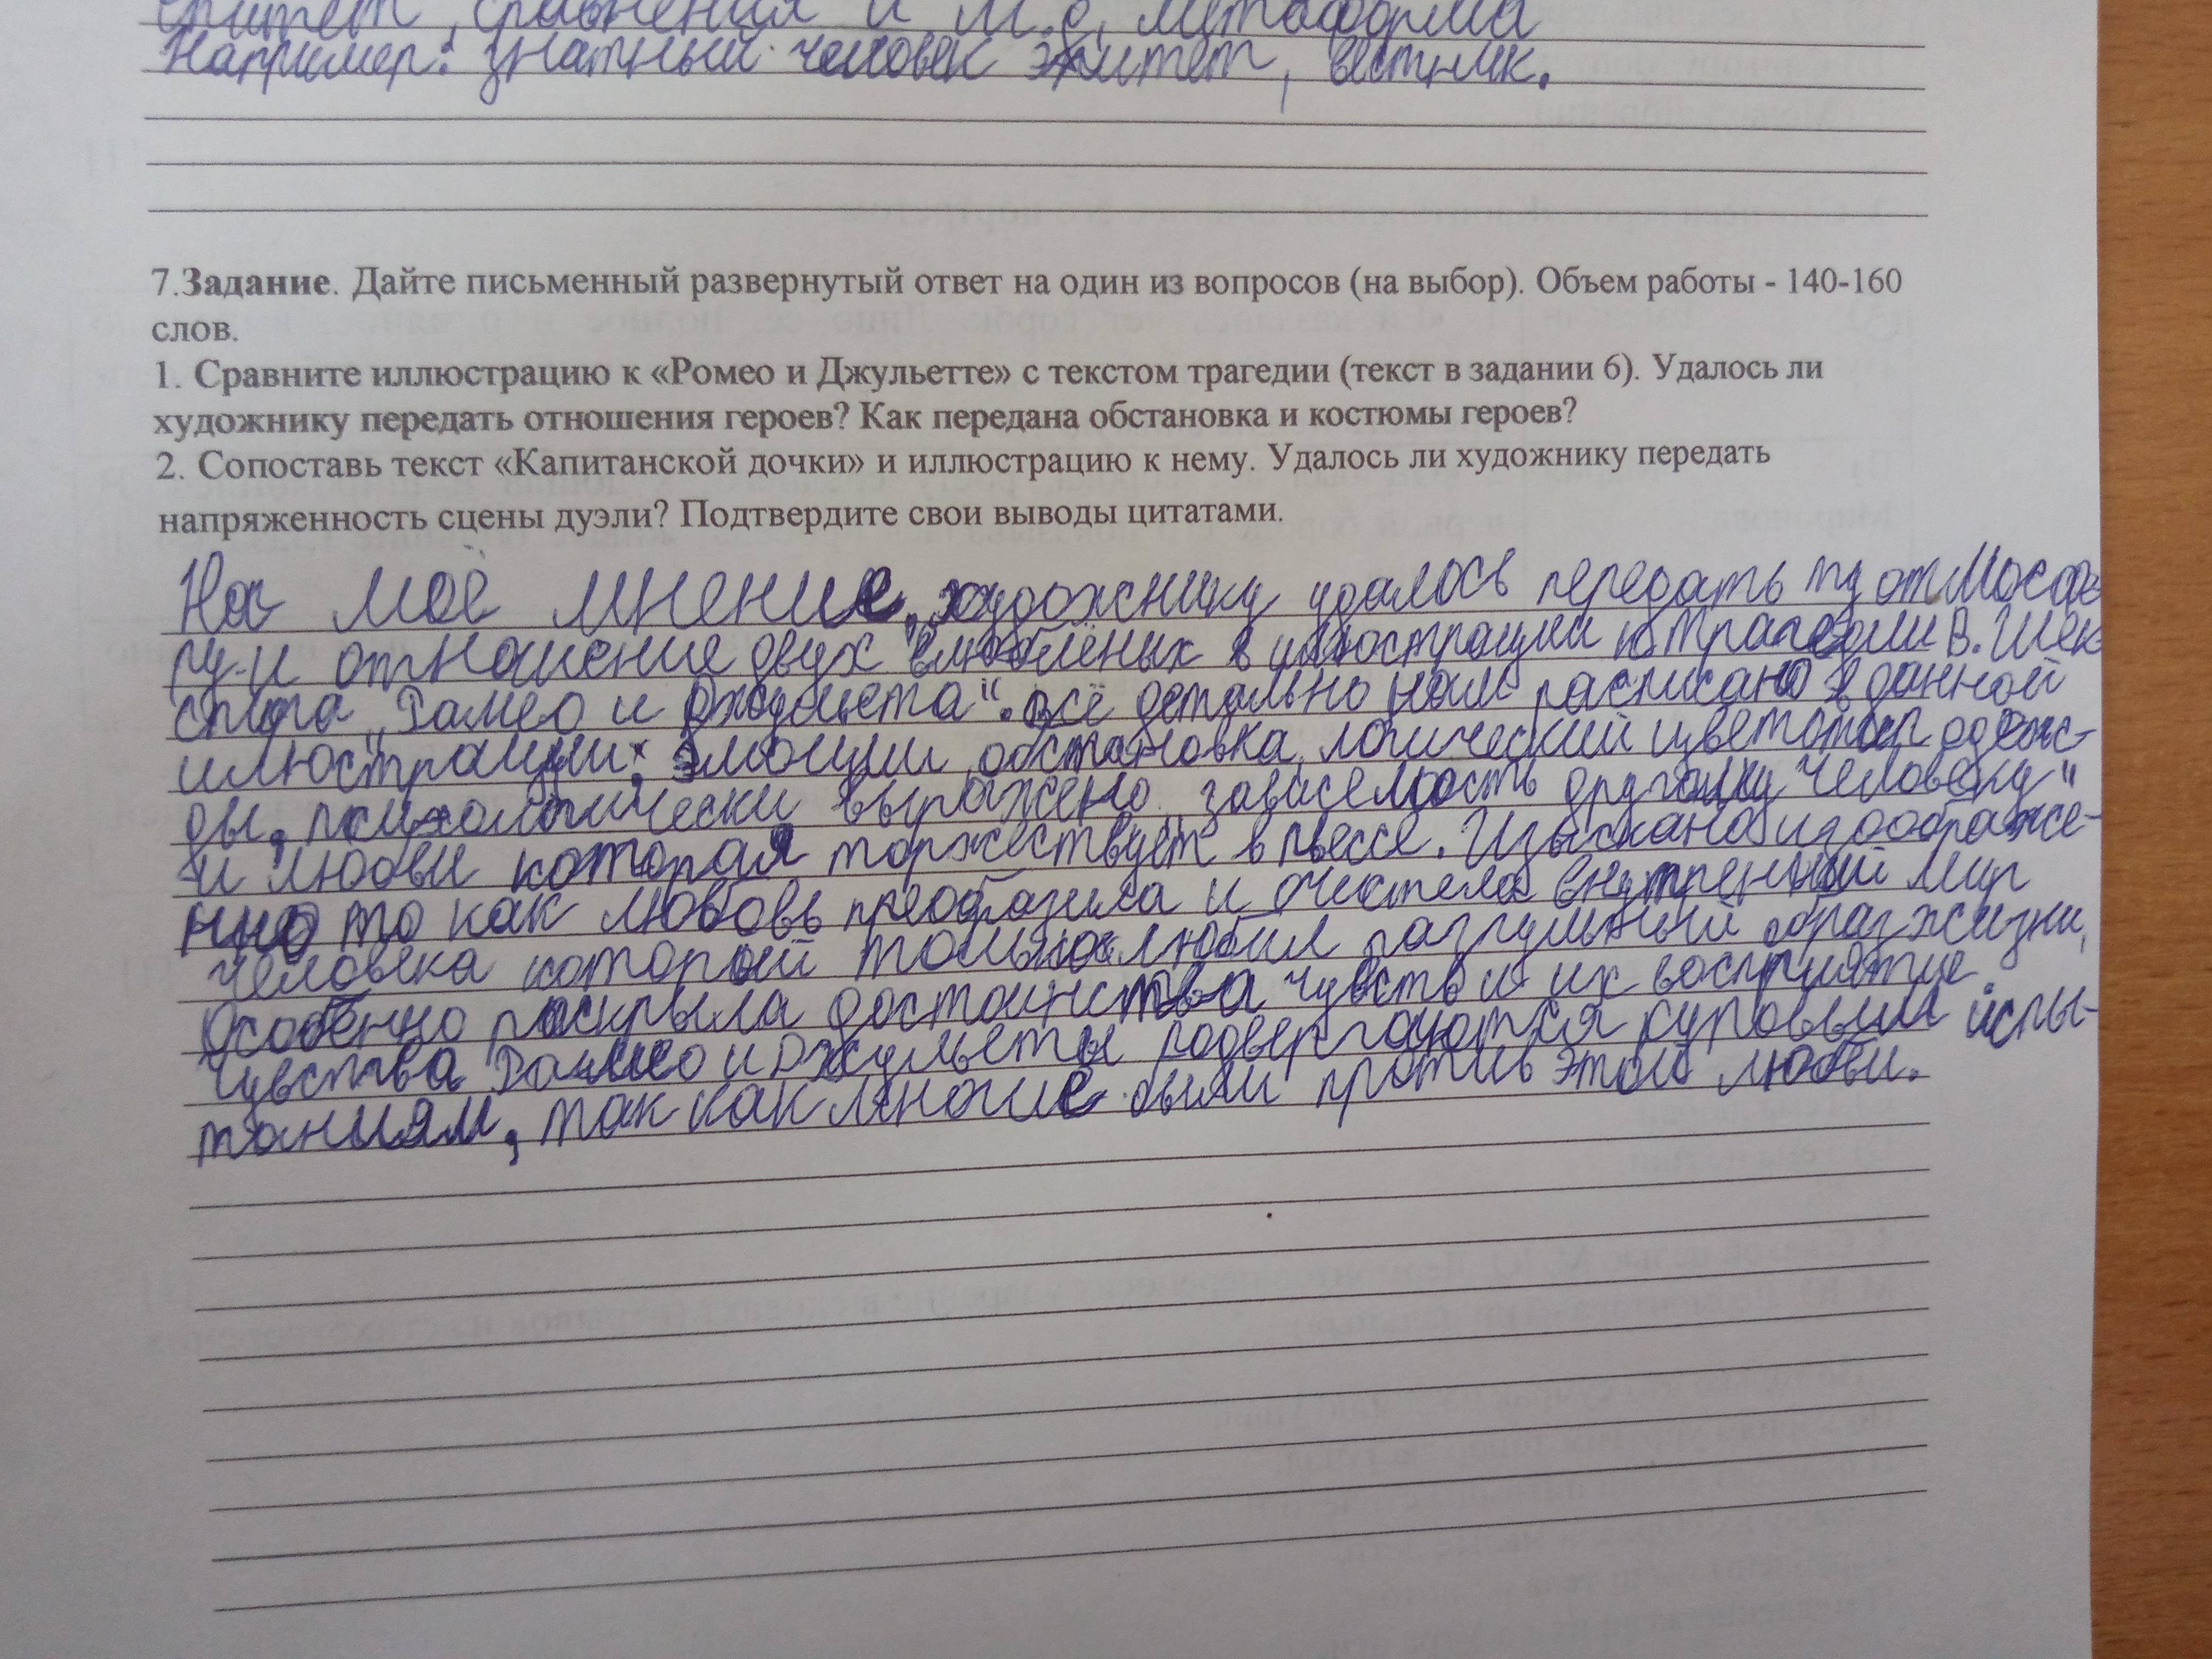 эпитет, сравнения и м.д, метаформа
Например: знатный человек эпитет, вестник.
7.Задание. Дайте письменный развернутый ответ на один из вопросов (на выбор). Объем работы - 140-160
слов.
1. Сравните иллюстрацию к «Ромео и Джульетте» с текстом трагедии (текст в задании 6). Удалось ли
художнику передать отношения героев? Как передана обстановка и костюмы героев?
2. Сопоставь текст «Капитанской дочки» и иллюстрацию к нему. Удалось ли художнику передать
напряженность сцены дуэли? Подтвердите свои выводы цитатами.
На моё мнение, художнику удалось передать ту отмосфе-
ру и отношение двух влюблёных в илюстрации к трагедии В. Шек
спира „Рамео и Джульета“. Всё детально нам расписано в данной
илюстрации: эмоции, обстановка, логический цветотип одеж-
ды, психологически выражено „зависемость другому человеку“
и любви которая торжествует в пьессе. Изыскано изображе-
нно то как любовь преобразила и очистела внутренный мир
человека который только любил разгульный образ жизни,
Особенно раскрыла достоинства чувств и их восприятие
Чувства Рамео и Джульеты подвергаются суровым испы-
таниям, так как многие были против этой любви.